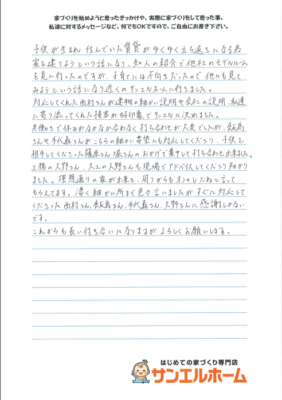 家づくりを始めようと思ったきっかけや、実際に家づくりをして思った事、
私達に対するメッセージなど、何でもOKですので、ご自由にお書き下さい。
子供が生まれ 住んでいた賃貸が少く少く立ち退きになる為
家を建てようという話になり、知人の紹介で他社のモデルルーム
を見に行ったのですが、子育てには不向きだったので他にも見て
みようという話になり近くのサンエルホームに行きました。
対応してくれた出村さんが建物の細かい説明や会社の説明、私達
に寄り添ってくれた接客が好印象でサンエルに決めました。
共働きで休みがなかなか合わなく打ち合わせが大変でしたが、飯島
さんや千代森さんがこちらの細かい希望にも対応してくださり、子供と
相手してくださった篠原さん、堀さんのおかげで集中して打ち合わせ出来ました。
工務の大野さん、大工の大野さんも現場でアドバイスしてくださり助かり
ました。理想通りの家が出来て、周りからもオシャレだねと言って
もらえてます。凄く細かい所まで色々言いましたがすぐに対応して
くださった出村さん、飯島さん、千代森さん、大野さんに感謝しかない
です。
これからも長い付き合いになりますがよろしくお願いします。
はじめての家づくり専門店
サンエルホーム